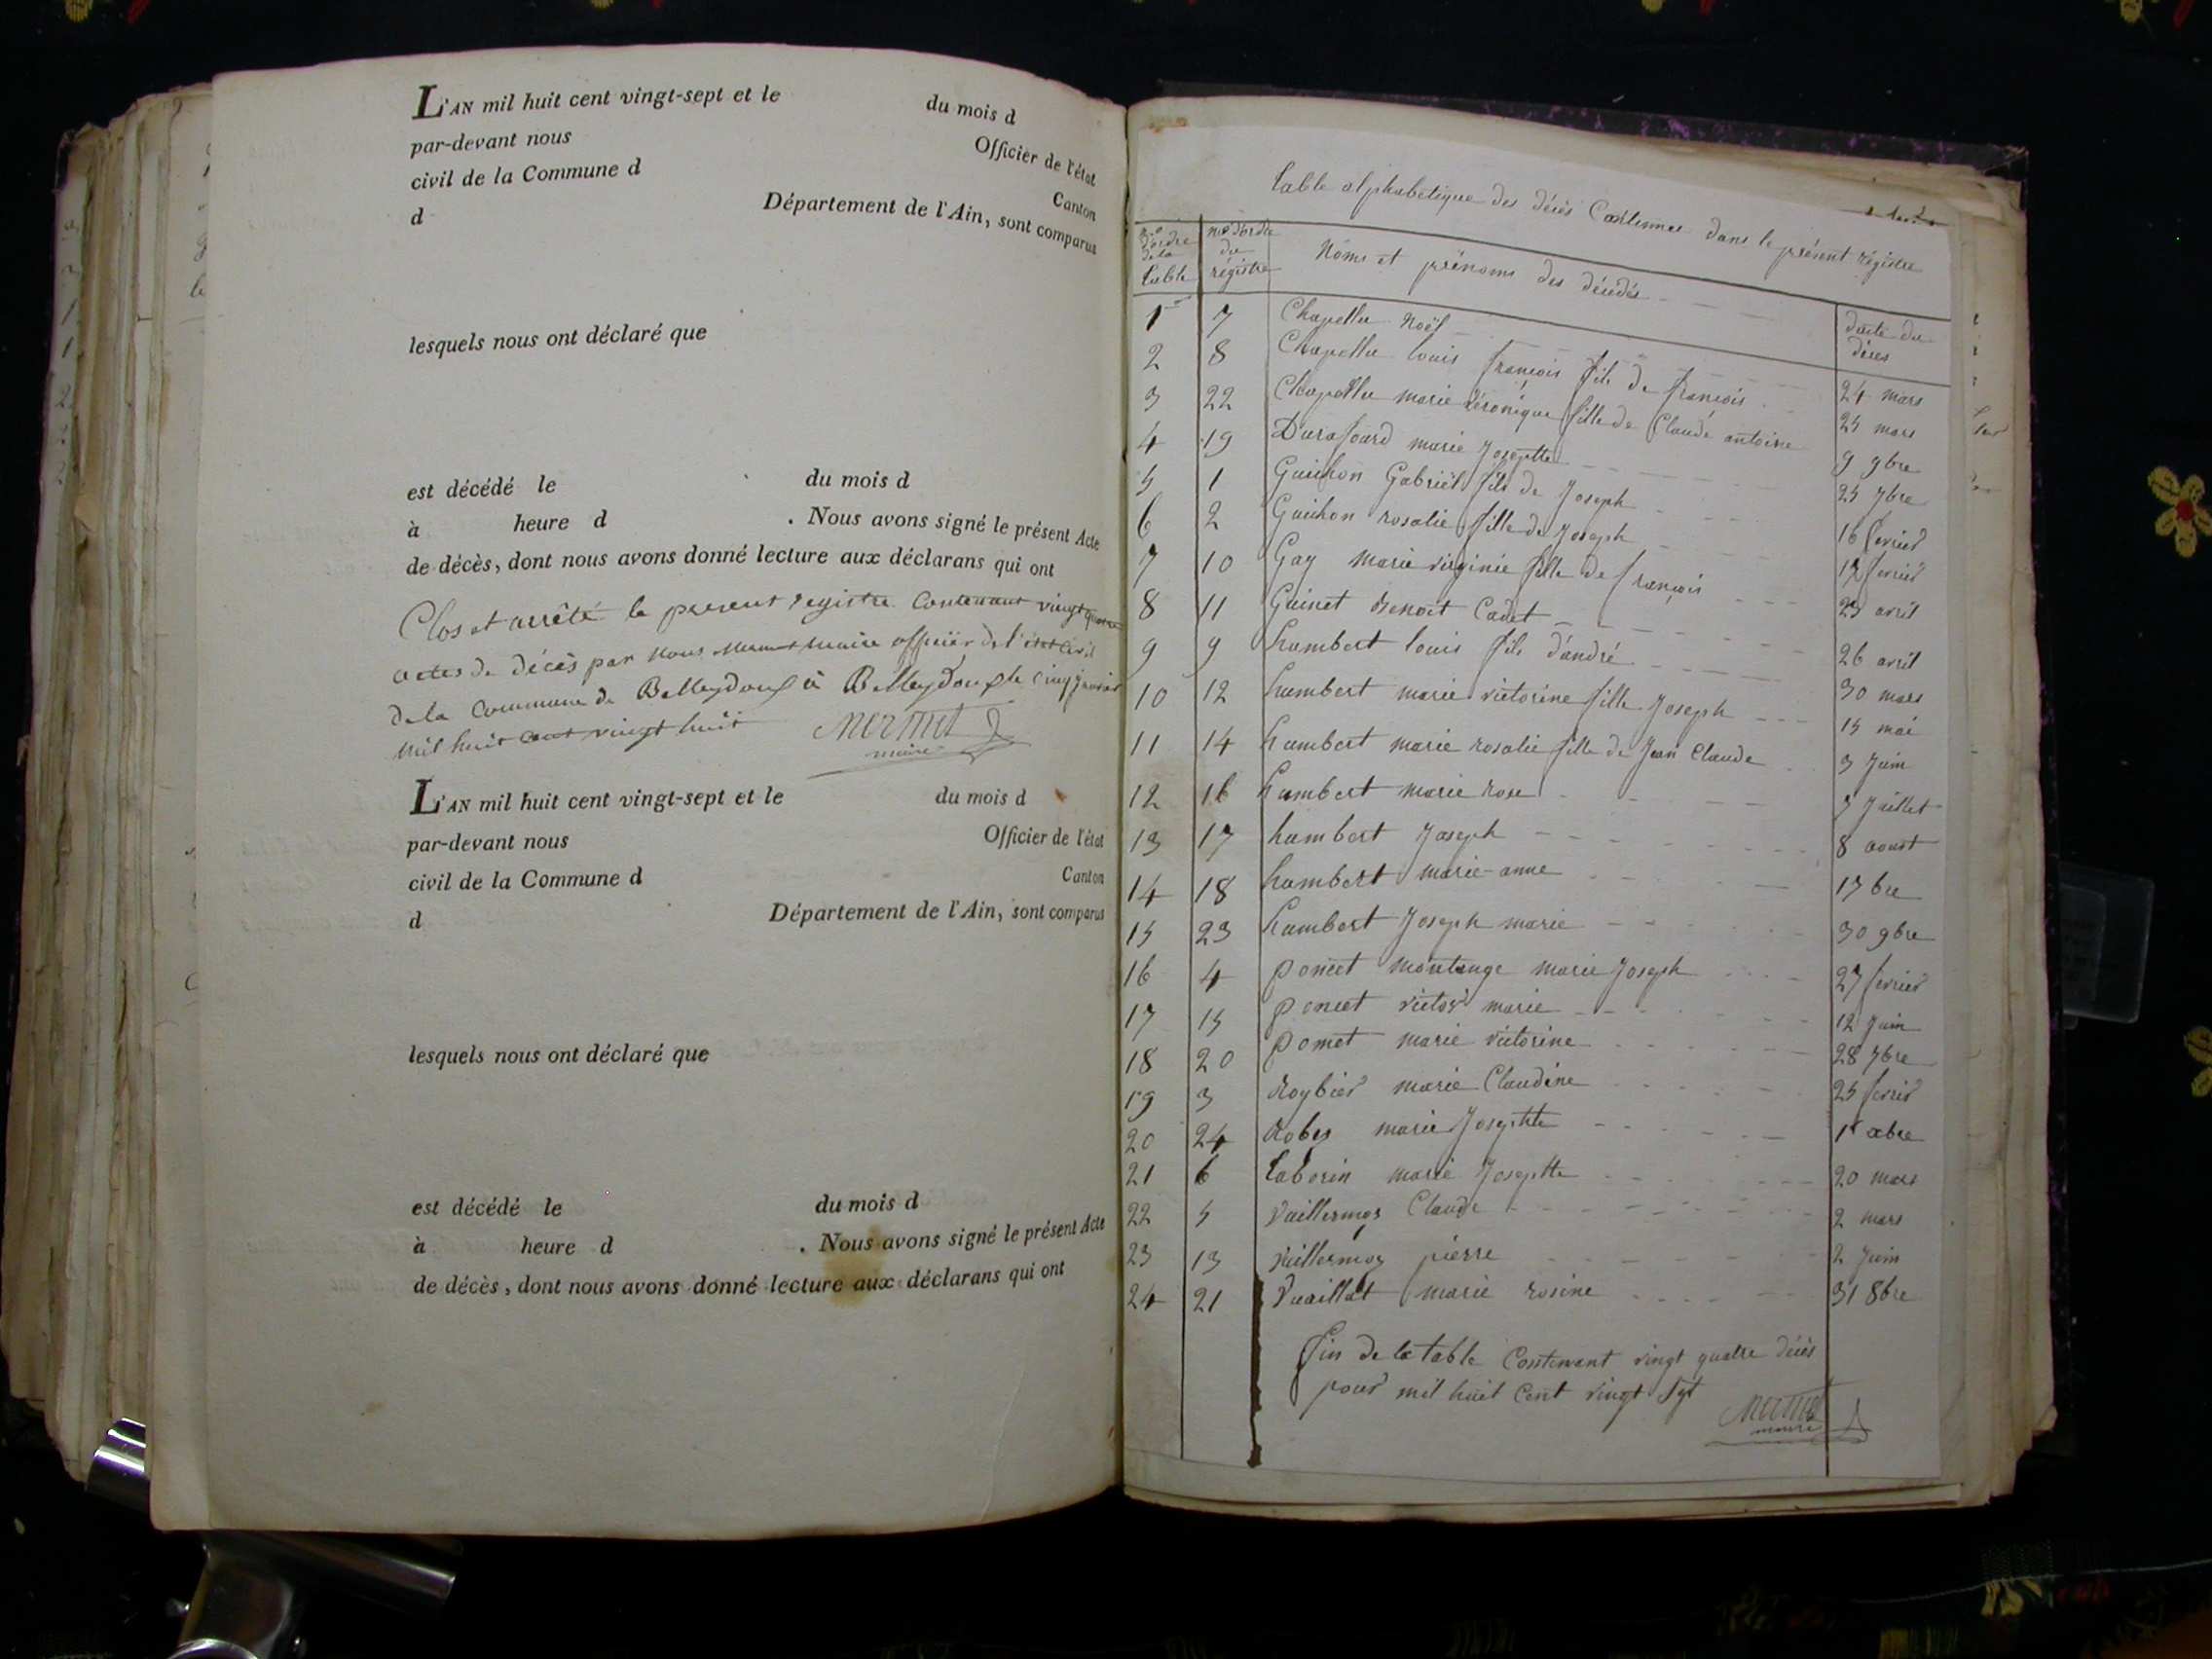 L'AN mil huit cent vingt-sept et le du mois d
par-devant nous Officier de l'état
civil de la Commune d Canton
d Département de l'Ain, sont comparus
lesquels nous ont déclaré que
est décédé le du mois d
à heure d . Nous avons signé le présent Acte
de décès, dont nous avons donné lecture aux déclarans qui ont
Clos et arrêté le present registre contenant vingt quatre
actes de décès par nous mermet maire officier de l'état Civil
de la Commune de Belleydoux à Belleydoux le cinq janvier
mil huit cent vingt huit
mermet
maire
L'AN mil huit cent vingt-sept et le du mois d
par-devant nous Officier de l'état
civil de la Commune d Canton
d Département de l'Ain, sont comparus
lesquels nous ont déclaré que
est décédé le du mois d
à heure d . Nous avons signé le présent Acte
de décès, dont nous avons donné lecture aux déclarans qui ont
table alphabetique des décès Contenues dans le présent régistre
no d'ordre de la table no d'ordre du régistre Noms et prénoms des décédés date du déces
1 7 Chapellu Noël 24 mars
2 8 Chapellu louis françois fils de françois 25 mars
3 22 Chapellu marie véronique fille de Claude antoine 9 9bre
4 19 Durafourd marie Josephte 25 7bre
5 1 Guichon Gabriel fils de Joseph 16 fevrier
6 2 Guichon rosalie fille de Joseph 17 fevrier
7 10 Gay marie virginie fille de françois 23 avril
8 11 Guinet Benoit Cadet 26 avril
9 9 humbert louis fils d'andré 30 mars
10 12 humbert marie victorine fille Joseph 15 mai
11 14 humbert marie rosalie fille de Jean Claude 3 Juin
12 16 humbert marie rose 7 Juillet
13 17 humbert Joseph 8 aoust
14 18 humbert marie anne 1 7bre
15 23 humbert Joseph marie 30 9bre
16 4 poncet montange marie Joseph 27 fevrier
17 15 poncet victor marie 12 Juin
18 20 poncet marie victorine 28 7bre
19 3 Roybier marie Claudine 25 fevrier
20 24 Robez marie Josephte 1er xbre
21 6 taborin marie Josephte 20 mars
22 5 Vuillermoz Claude 2 mars
23 13 Vuillermoz pierre 2 Juin
24 21 Vuaillat marie rosine 31 8bre
Fin de la table Contenant vingt quatre décès
pour mil huit Cent vingt Sept
mermet
maire